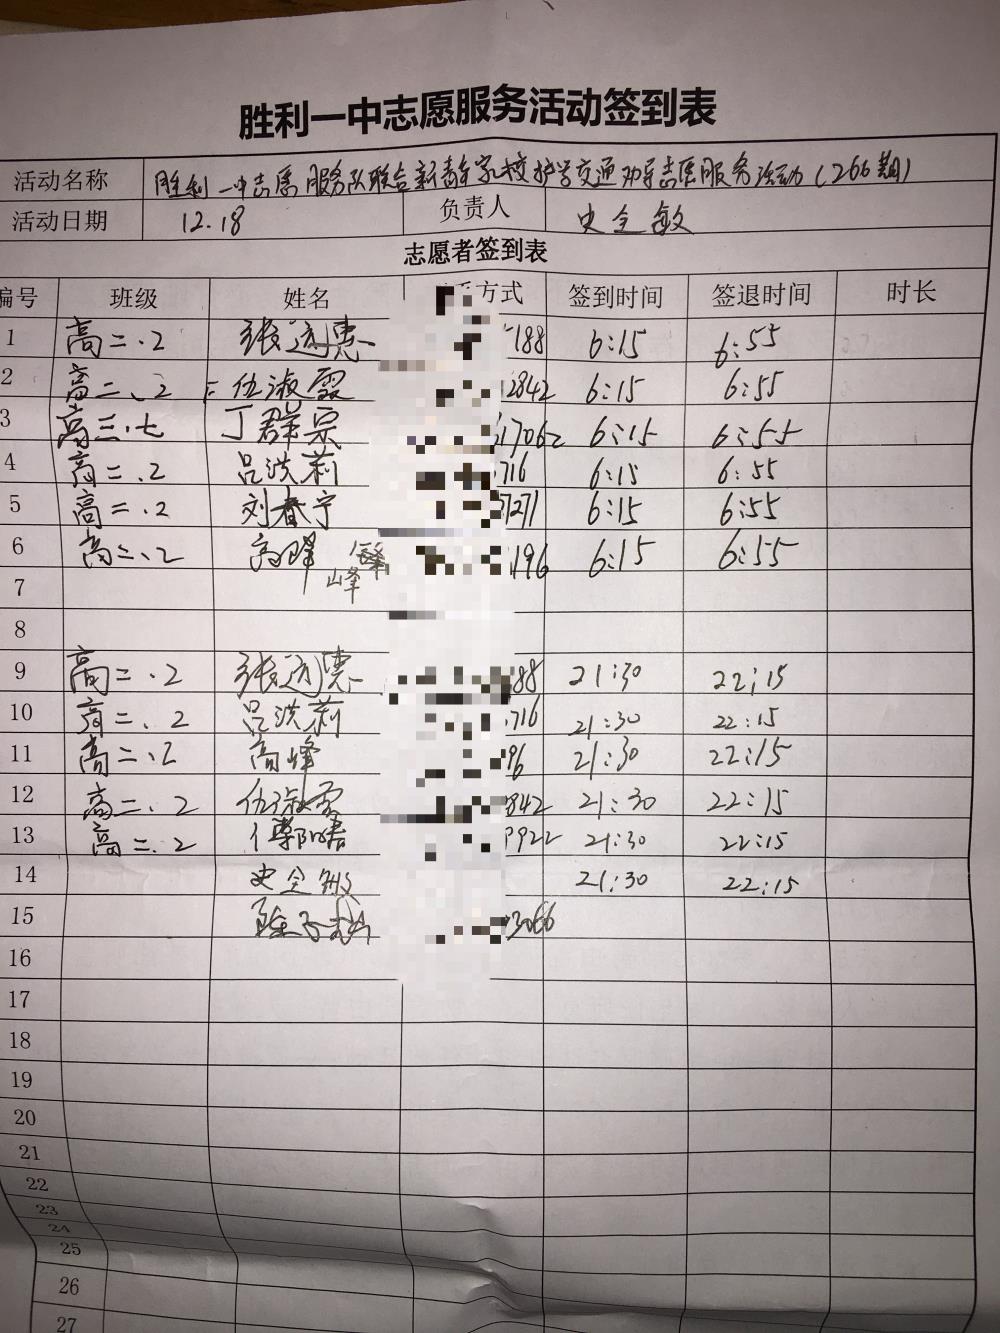 胜利一中志愿服务活动签到表
活动名称 胜利一中志愿服务队联合新春学校护学交通劝导志愿服务活动(266期)
活动日期 12.18 负责人 史全敏
志愿者签到表
编号 班级 姓名 方式 签到时间 签退时间 时长
1 高二.2 张远惠 188 6:15 6:55
2 高二、2 伍淑霞 2842 6:15 6:55
3 高三.七 丁群宗 17062 6:15 6:55
4 高二.2 吕洪莉 716 6:15 6:55
5 高二.2 刘春宁 7271 6:15 6:55
6 高二.2 高峰 峰 196 6:15 6:55
7
8
9 高二.2 张远惠 88 21:30 22:15
10 高二.2 吕洪莉 716 21:30 22:15
11 高二.2 高峰 96 21:30 22:15
12 高二.2 842 21:30 22:15
13 高二.2 9922 21:30 22:15
14 史全 21:30 22:15
15 3066
16
17
18
19
20
21
22
23
24
25
26
27